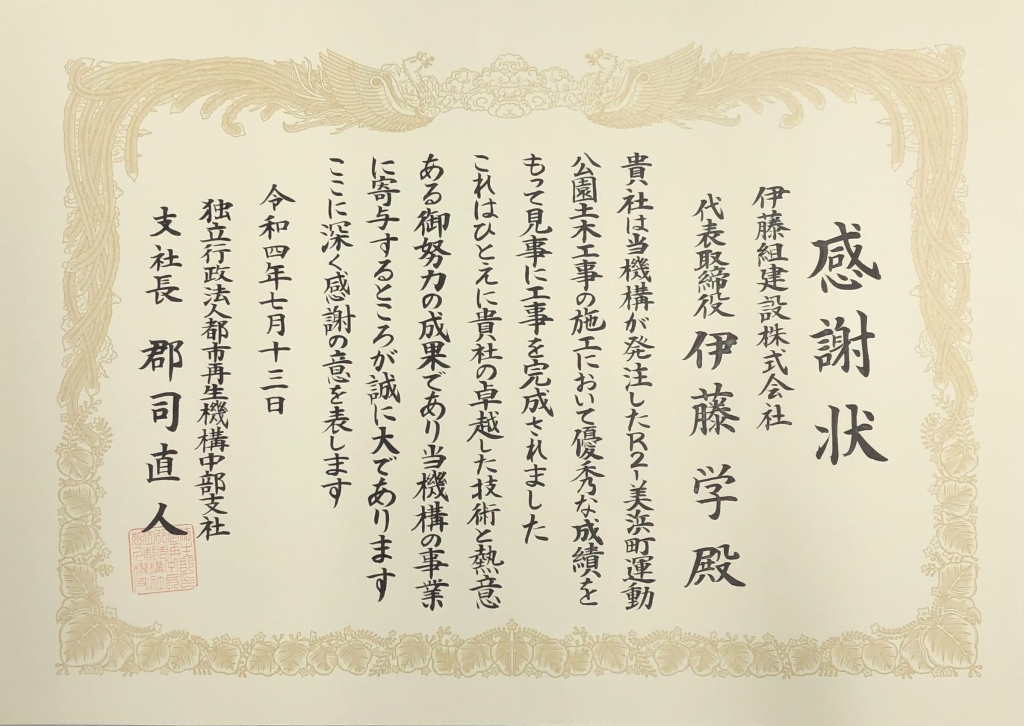 感謝状
伊藤組建設株式会社
代表取締役 伊藤 学 殿
貴社は当機構が発注したR2-美浜町運動
公園土木工事の施工において優秀な成績を
もって見事に工事を完成されました
これはひとえに貴社の卓越した技術と熱意
ある御努力の成果であり当機構の事業
に寄与するところが誠に大であります
ここに深く感謝の意を表します
令和四年七月十三日
独立行政法人都市再生機構中部支社
支社長 郡司直人